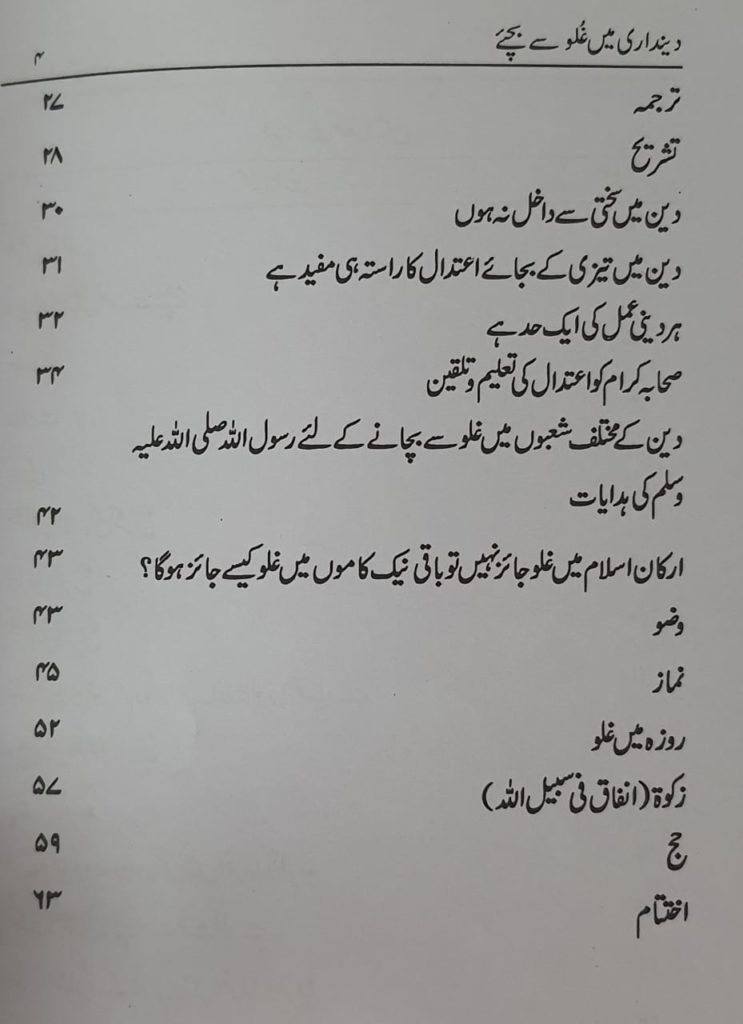 دینداری میں غُلو سے بچئے ۴
ترجمہ ۲۷
تشریح ۲۸
دین میں سختی سے داخل نہ ہوں ۳۰
دین میں تیزی کے بجائے اعتدال کا راستہ ہی مفید ہے ۳۱
ہر دینی عمل کی ایک حد ہے ۳۲
صحابہ کرام کو اعتدال کی تعلیم و تلقین ۳۴
دین کے مختلف شعبوں میں غلو سے بچانے کے لئے رسول اللہ صلی اللہ علیہ
وسلم کی ہدایات ۴۲
ارکان اسلام میں غلو جائز نہیں تو باقی نیک کاموں میں غلو کیسے جائز ہوگا؟ ۴۳
وضو ۴۳
نماز ۴۵
روزہ میں غلو ۵۲
زکوۃ (انفاق فی سبیل اللہ) ۵۷
حج ۵۹
اختتام ۶۳